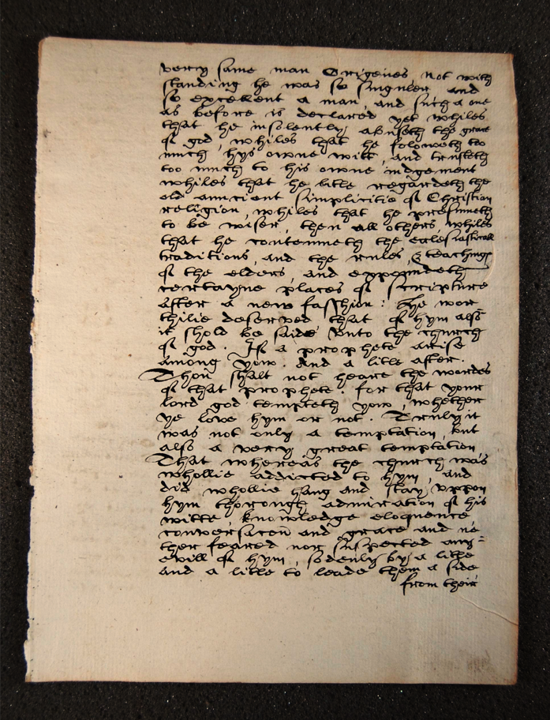 verry same man Origenes, not with
standing he was so singuler and
so excellent a man, and such a one
as before is declared yet whiles
that he insolently abuseth the grace
of god, whiles that he foloweth to
much hys owne witt, and trusteth
too much to his owne iudgement
whiles that he litle regardeth the
old auncient simplicitie of Christian
religion, whiles that he presumeth
to be wiser, then all others whiles
that he contemneth the ecclesiasticall
traditions, and the rules, & teaching
of the elders, and expoundeth
certayne places of scripture
after a new fasshion: He wor
thilie deserved that of hym also
it shold be saide vnto the church
of god. If a prophete arise
among yow. And a litle after.
Thou shalt not heare the wordes
of that prophete. for that your
lord god tempteth yow, whether
ye love hym or not. Truly it
was not only a temptation, but
also a verry great temptation
That whereas the church was
whollie addicted to hym, and
did whollie hang and stay vppon
hym thorough admiration of his
witte, knowledge eloquence
conversacon and grace and ne
ther feared nor suspected any=
evill of hym, sodenly by a litle
and a litle to leade them a side
from their